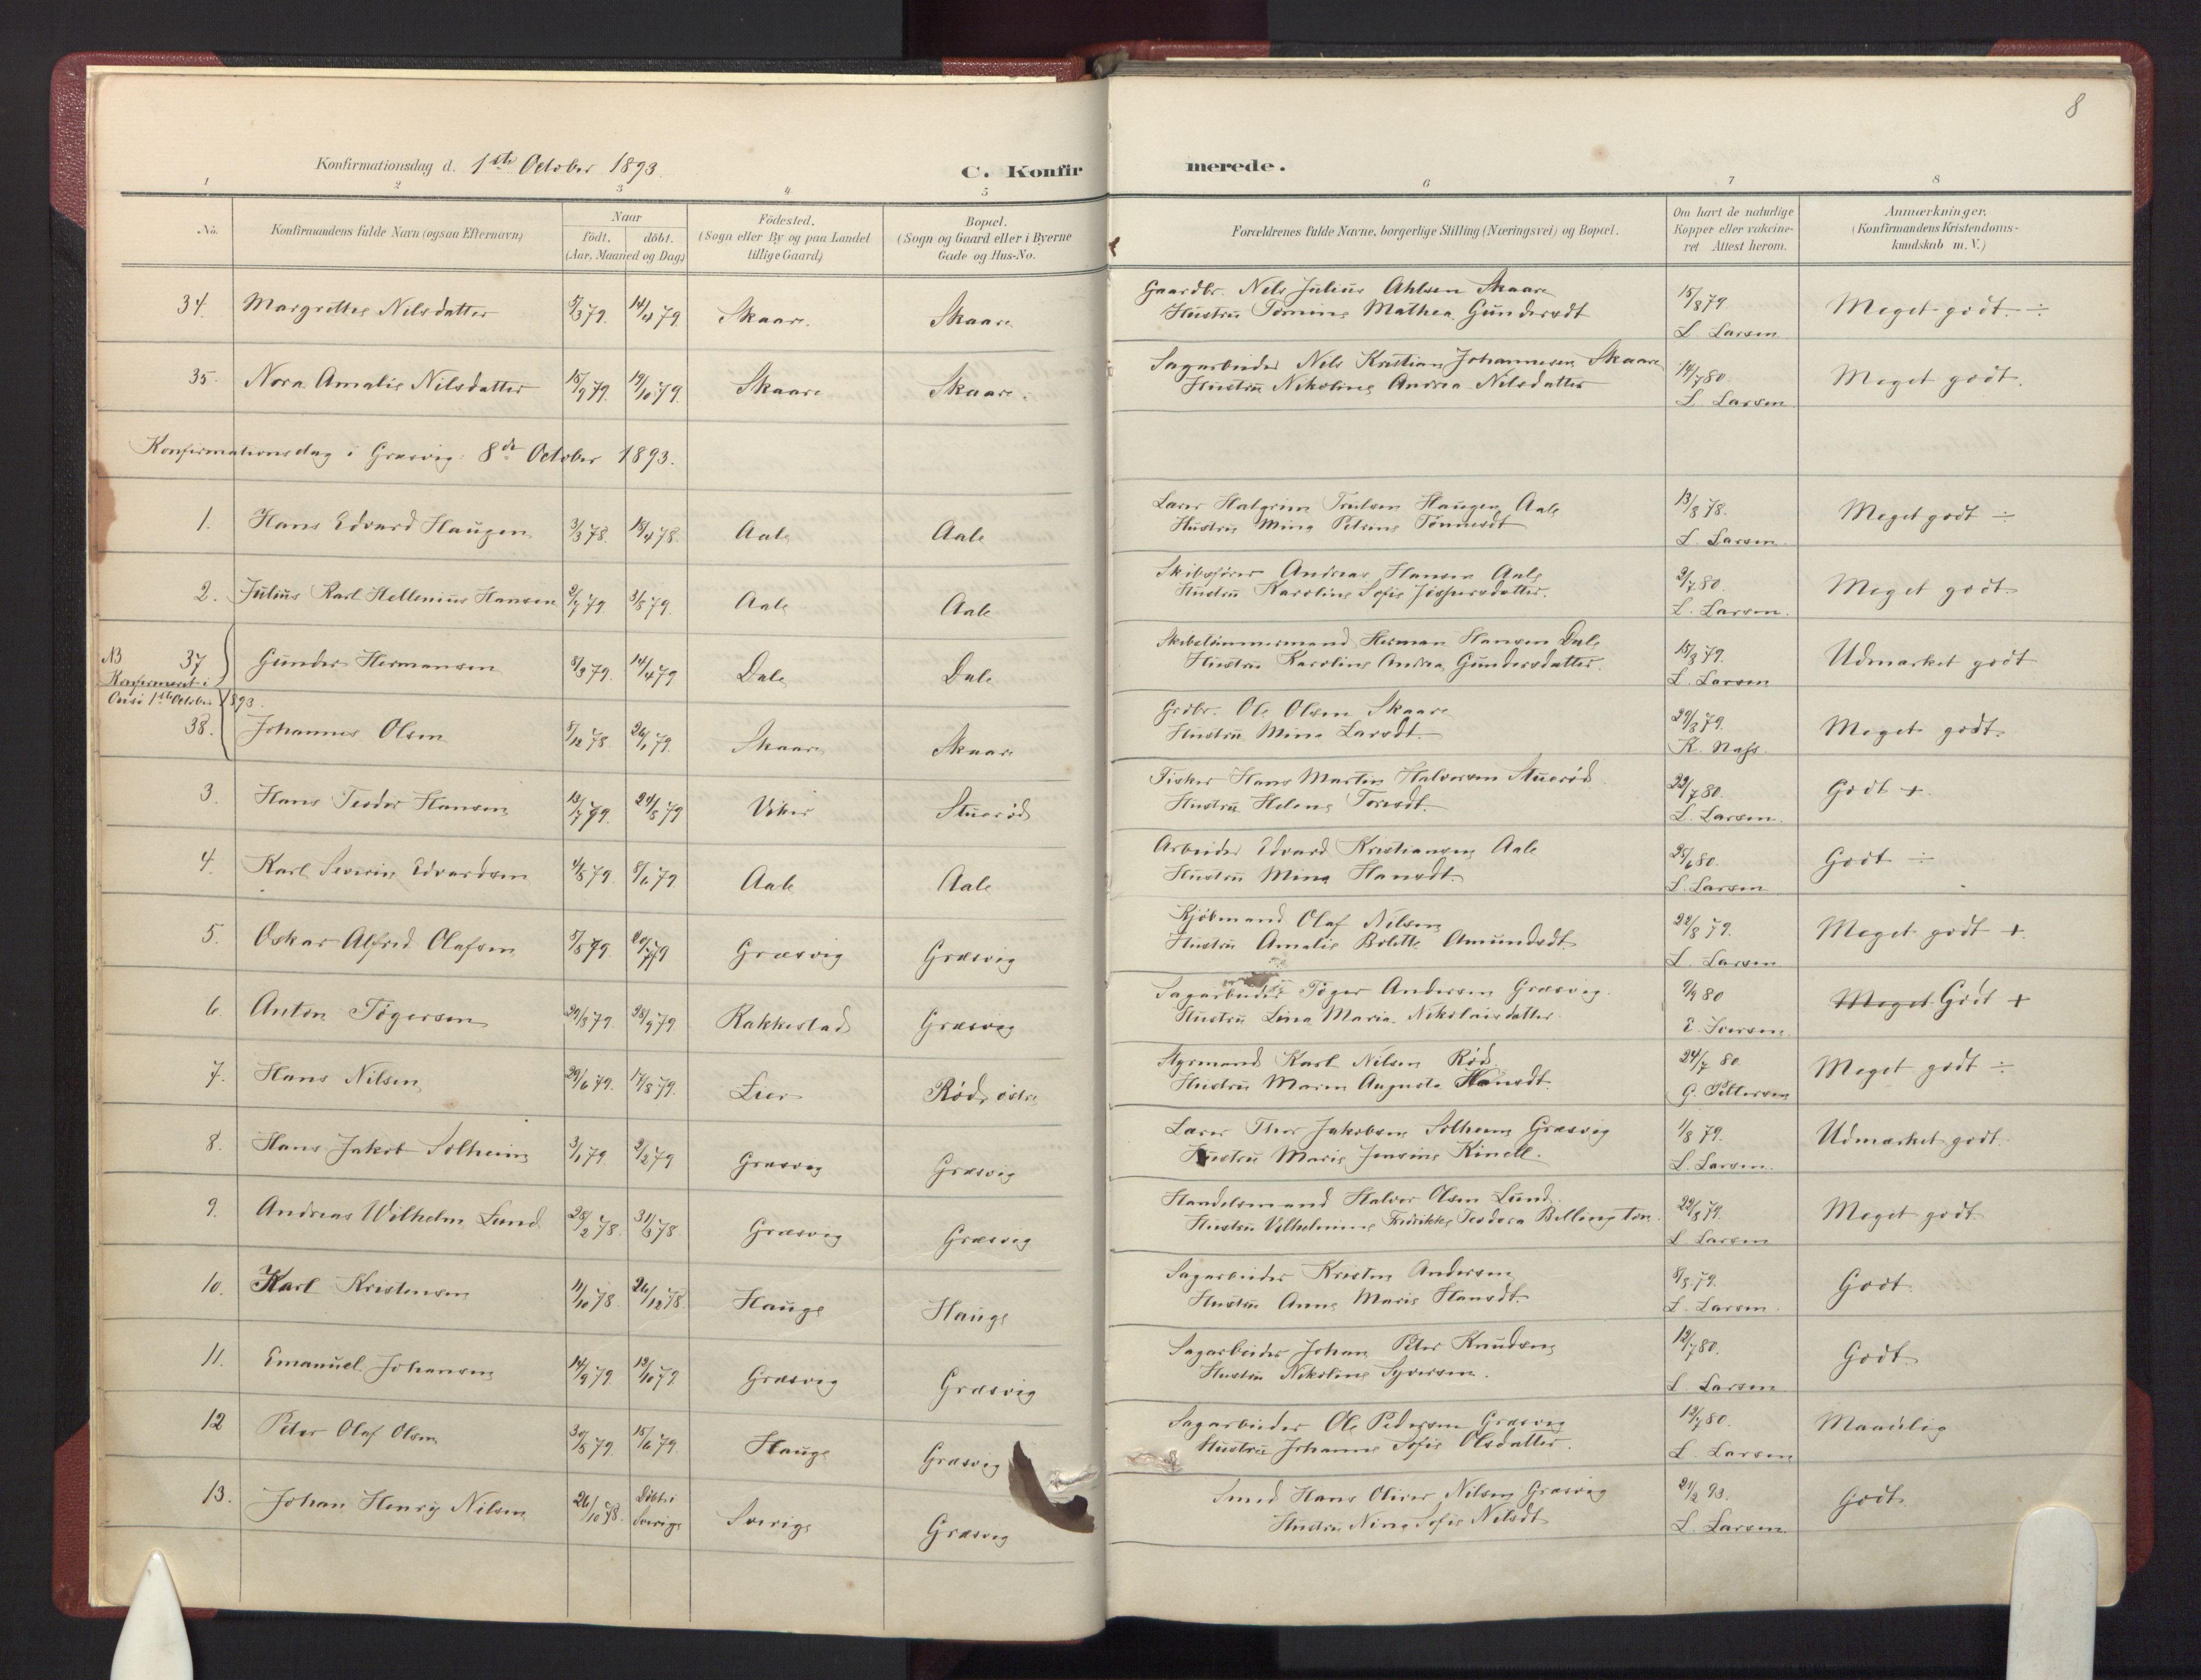 8
Konfirmationsdag d. 1ste October 1893.
C. Konfirmerede.
1 2 3 4 5 6 7 8
No.
Konfirmandens fulde Navn (ogsaa Efternavn)
Naar
födt. döbt.
(Aar, Maaned og Dag)
Födested.
(Sogn eller By og paa Landet
tillige Gaard)
Bopæl.
(Sogn og Gaard eller i Byerne
Gade og Hus-No.
Forældrenes fulde Navne, borgerlige Stilling (Næringsvei) og Bopæl.
Om havt de naturlige
Kopper eller vakcine-
ret Attest herom.
Anmærkninger.
(Konfirmandens Kristendoms-
kundskab m. V.)
34. Margrethe Nilsdatter 5/3 79. 14/4 79. Skaare. Skaare. Gaardbr. Nils Julius Ahlsen Skaare 15/8 79. Meget godt. ÷
Hustru Tomine Mathea Gundersdt L. Larsen
35. Nora Amalie Nilsdatter 15/9 79. 19/10 79. Skaare Skaare. Sagarbeider Nils Kristian Johannesen Skaare 14/7 80. Meget godt.
Hustru Nikoline Andrea Nilsdatter L. Larsen
Konfirmationsdag i Græsvig 8de October 1893.
1. Hans Edvard Haugen 3/3 78. 18/4 78. Aale Aale Lærer Halgrim Trulsen Haugen Aale 13/8 78. Meget godt ÷
Hustru Mina Petrine Tønnesdt L. Larsen.
2. Julius Karl Hellenius Hansen 2/7 79. 3/8 79. Aale Aale Skibsfører Andreas Hansen Aale 2/7 80. Meget godt
Hustru Karoline Sofie Jespersdatter. L. Larsen.
NB
Konfirmeret i
Onsö 1ste October 1893.
37 Gunder Hermansen 8/3 79. 14/4 79 Dale Dale Skibstømmermand Herman Hansen Dale 15/8 79. Udmærket godt
Hustru Karoline Andrea Gundersdatter. L. Larsen
38. Johannes Olsen 8/12 78. 26/1 79. Skaare Skaare Grdbr. Ole Olsen Skaare 29/8 79. Meget godt.
Hustru Mina Larsdt. K. Næss.
3. Hans Teodor Hansen 13/7 79. 24/8 79 Viker Stuerød Fisker Hans Martin Halvorsen Stuerød 22/7 80. Godt +.
Hustru Helene Toresdt. L. Larsen.
4. Karl Severin Edvardsen 4/5 79. 8/6 79. Aale Aale Arbeider Edvard Kristiansen Aale 25/6 80. Godt ÷
Hustru Mina Hansdt. L. Larsen
5. Oskar Alfred Olafsen 5/5 79. 20/7 79 Græsvig Græsvig Kjöbmand Olaf Nilsen 22/8 79. Meget godt +.
Hustru Amalie Bolette Amundsdt. L. Larsen
6. Anton Tögersen 29/8 79. 28/9 79. Rakkestad Græsvig Sagarbeider Töger Andersen Græsvig. 9/9 80 Meget Godt +
Hustru Lina Maria Nikolaisdatter. E. Iversen.
7. Hans Nilsen 29/6 79. 17/8 79. Lier Rød östre Styrmand Karl Nilsen Rød. 24/7 80. Meget godt ÷
Hustru Maren Augusta Hansdt. G. Pettersen
8. Hans Jakob Solheim 3/1 79. 2/2 79 Græsvig Græsvig Lærer Thor Jakobsen Solheim Græsvig 1/8 79. Udmærket godt.
Hustru Marie Jensine Kinell. L. Larsen.
9. Andreas Wilhelm Lund 28/2 78. 31/3 78. Græsvig Græsvig Handelsmand Halvor Olsen Lund. 22/8 79. Meget godt
Hustru Vilhelmine Fredrikke Teodora Bellington. L. Larsen
10. Karl Kristensen 11/10 78. 26/12 78. Hauge Hauge Sagarbeider Kristen Andersen 8/8 79. Godt.
Hustru Anne Marie Hansdt. L. Larsen.
11. Emanuel Johansen 14/9 79. 12/10 79. Græsvig Græsvig Sagarbeider Johan Peter Knudsen 12/7 80. Godt
Hustru Nikoline Syversen. L. Larsen
12 Peter Olaf Olsen 30/5 79. 15/6 79. Hauge Græsvig Sagarbeider Ole Pedersen Græsvig 12/7 80. Maadelig
Hustru Johanne Sofie Olsdatter. L. Larsen
13. Johan Henry Nilsen 26/10 78. Döbt i Sverige Sverige Græsvig Smed Hans Oliver Nilsen Græsvig 21/2 93. Godt
Hustru Nina Sofie Nilsdt L. Larsen